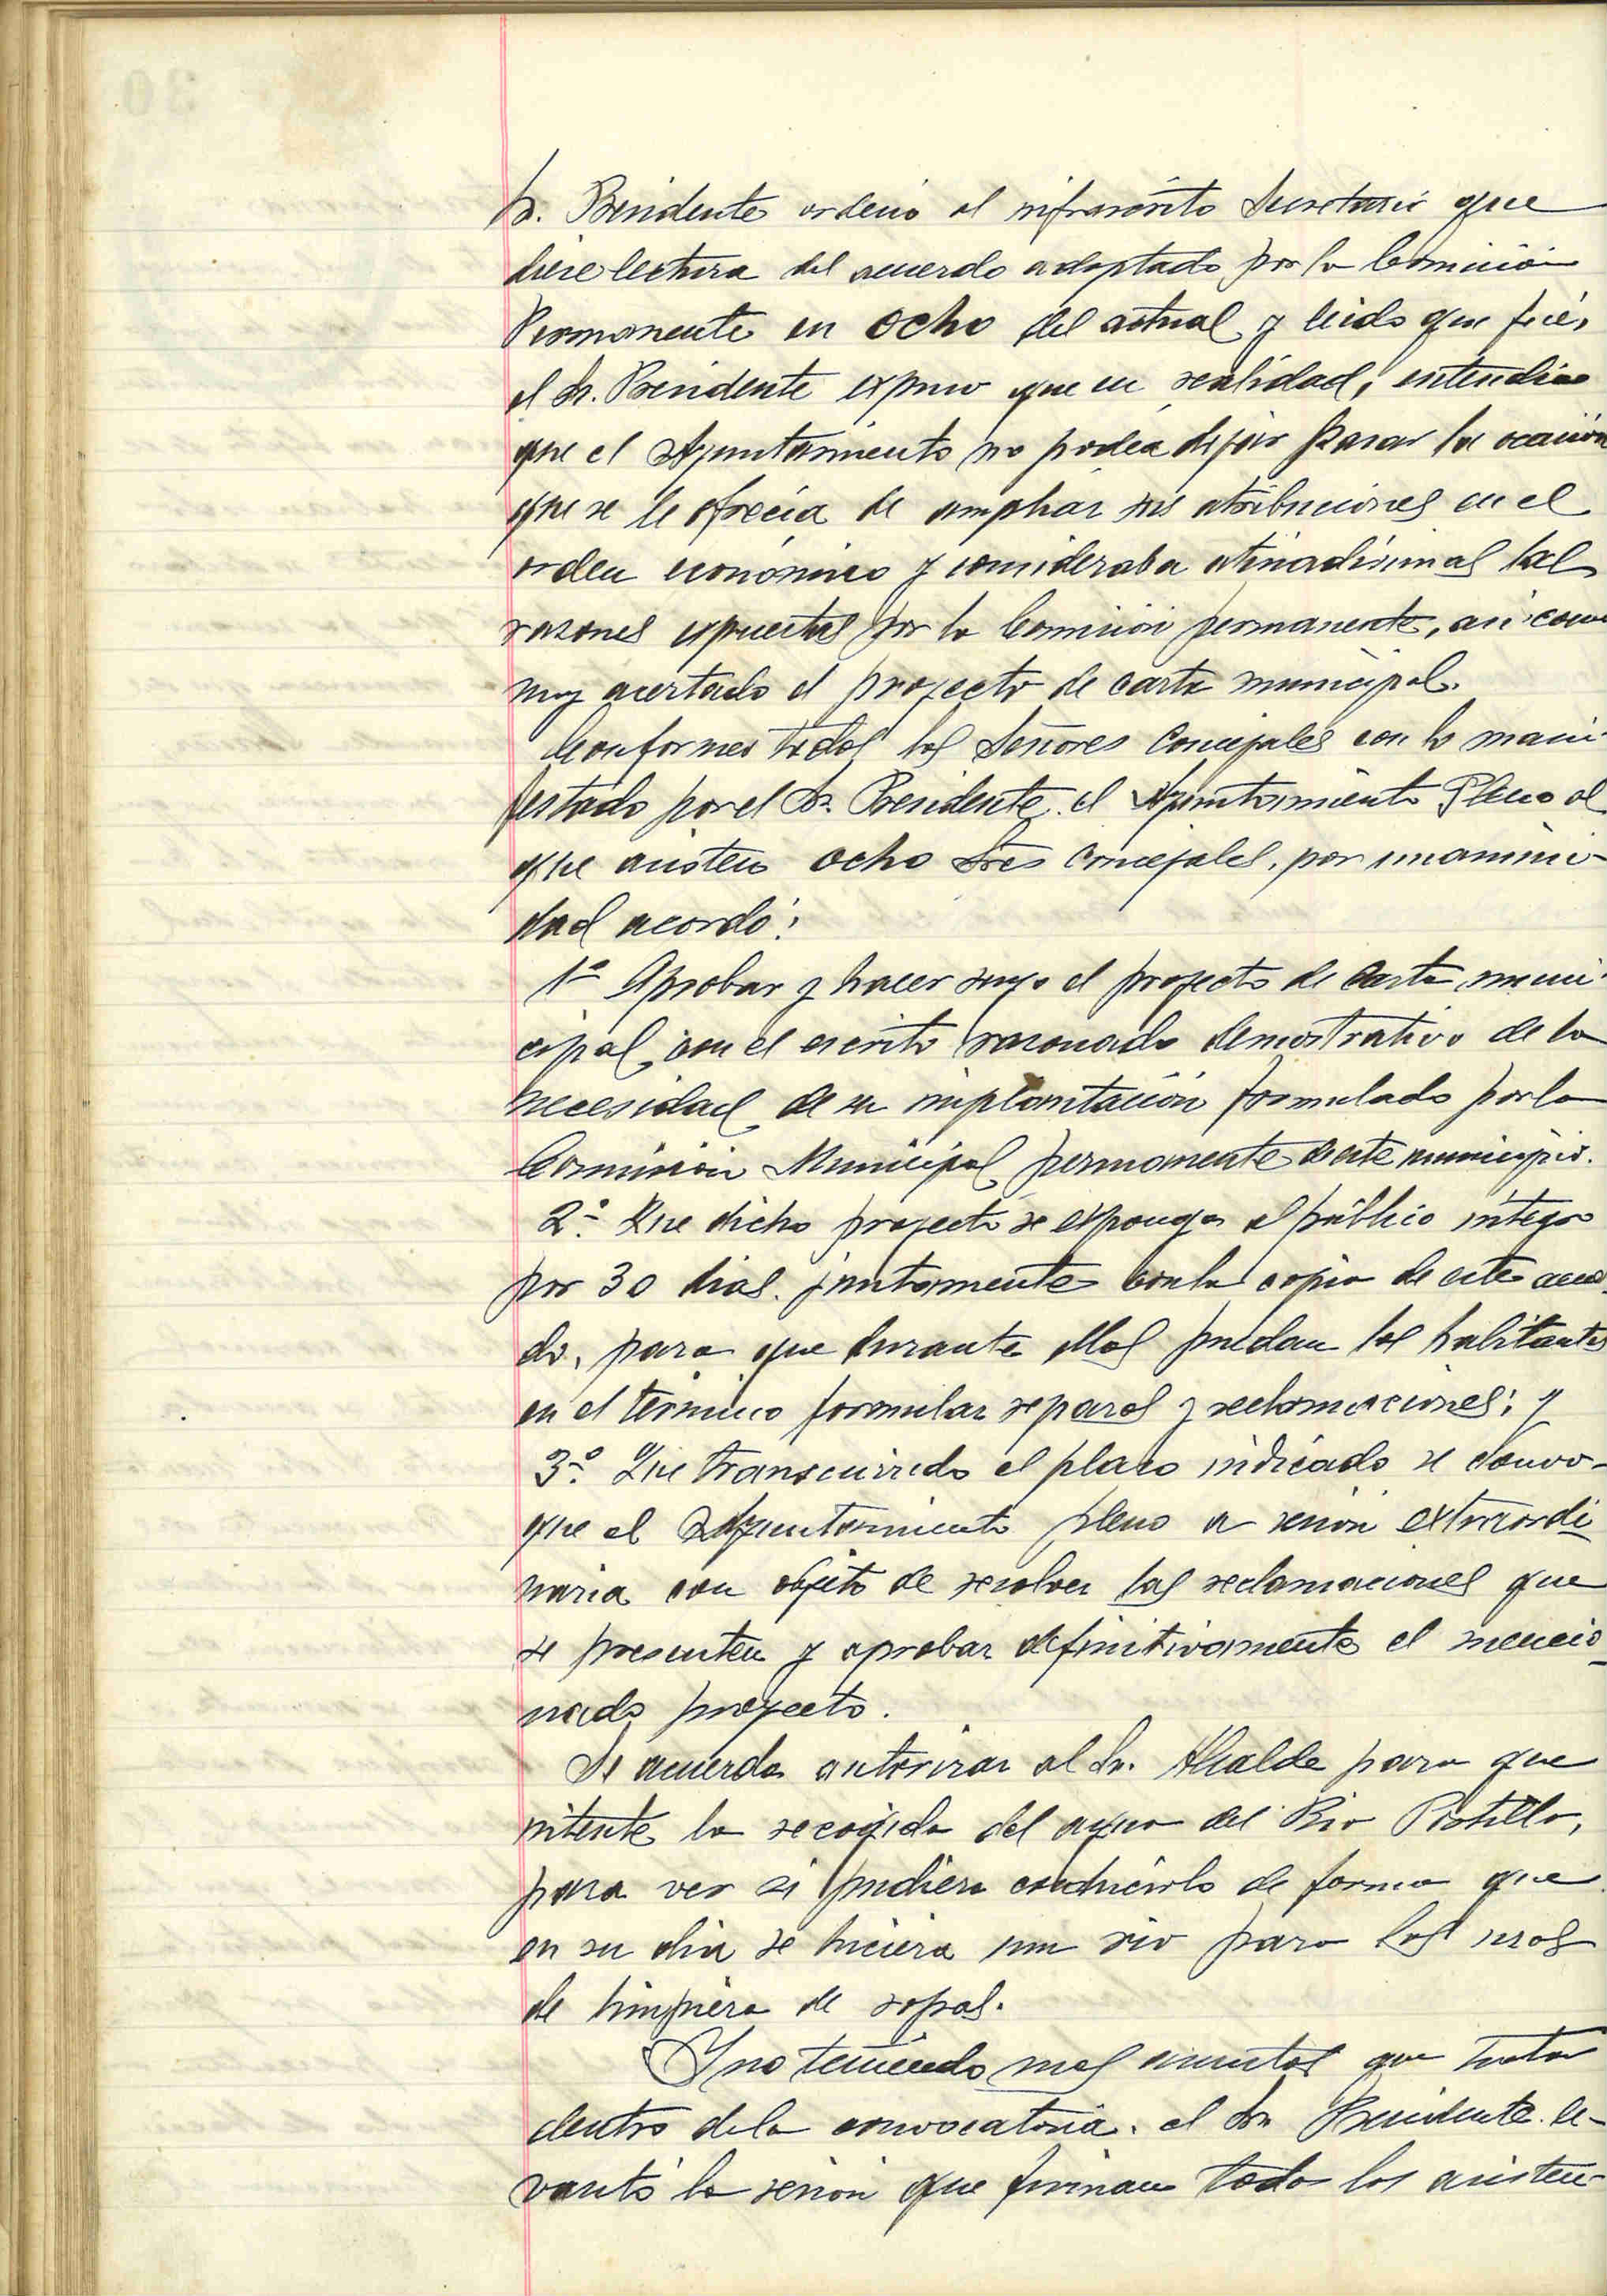 Sr. Presidente ordenó al infrascrito Secretario que
diese lectura del acuerdo adoptado por la Comisión
Permanente en ocho del actual y leido que fué,
el Sr. Presidente expuso que en realidad, entendia
que el Ayuntamiento no podia dejar pasar la ocasión
que se le ofrecia de ampliar sus atribuciones en el
orden económico y consideraba atinadisimas las
razones expuestas por la Comisión permanente, asi como
muy acertado el proyecto de carta municipal.
Conformes todos los Señores Concejales con lo mani-
festado por el Sr. Presidente, el Ayuntamiento Pleno al
que asisten ocho Sres Concejales, por unanimi-
dad acordó:
1º Aprobar y hacer suyo el proyecto de Carta muni-
cipal, con el escrito razonado demostrativo de la
necesidad de su implantación formulado por la
Comisión Municipal permanente de este municipio.
2º. Que dicho proyecto se exponga al público integro
por 30 dias. juntamente con la copia de este acuer-
do, para que durante ellos puedan los habitantes
en el término formular reparos y reclamaciones; y
3º. Que transcurrido el plazo indicado se convo-
que al Ayuntamiento pleno a sesión extraordi-
naria con objeto de resolver las reclamaciones que
se presenten y aprobar definitivamente el mencio-
nado proyecto.
Se acuerda autorizar al Sr. Alcalde para que
intente la recogida del agua del Rio Postillo,
para ver si pudiera conducirlo de forma que
en su dia se hiciera un rio para los usos
de limpieza de ropas.
Y no teniendo mas asuntos que tratar
dentro de la convocatoria. el Sr. Presidente le-
vantó la sesión que firman todos los asisten-